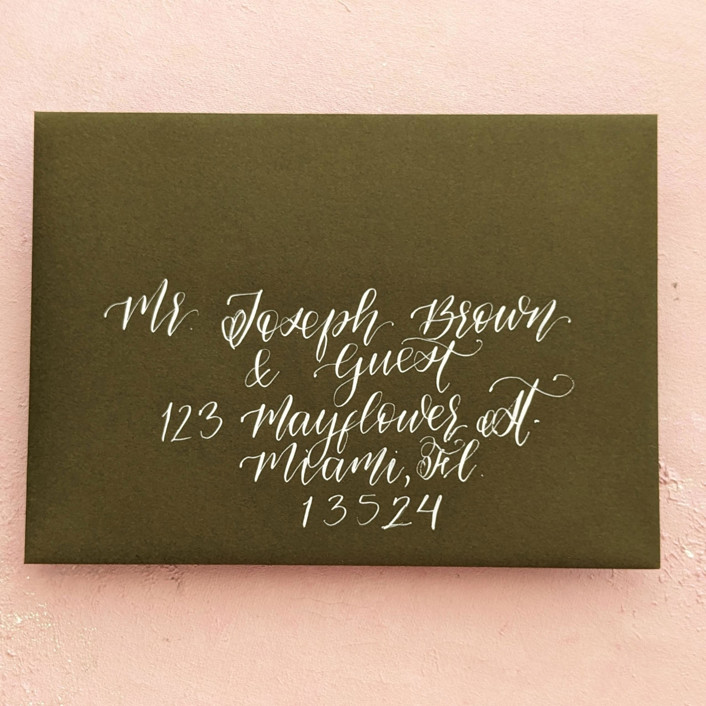 Mr. Joseph Brown
& Guest
123 Mayflower St.
Miami, Fl.
13524